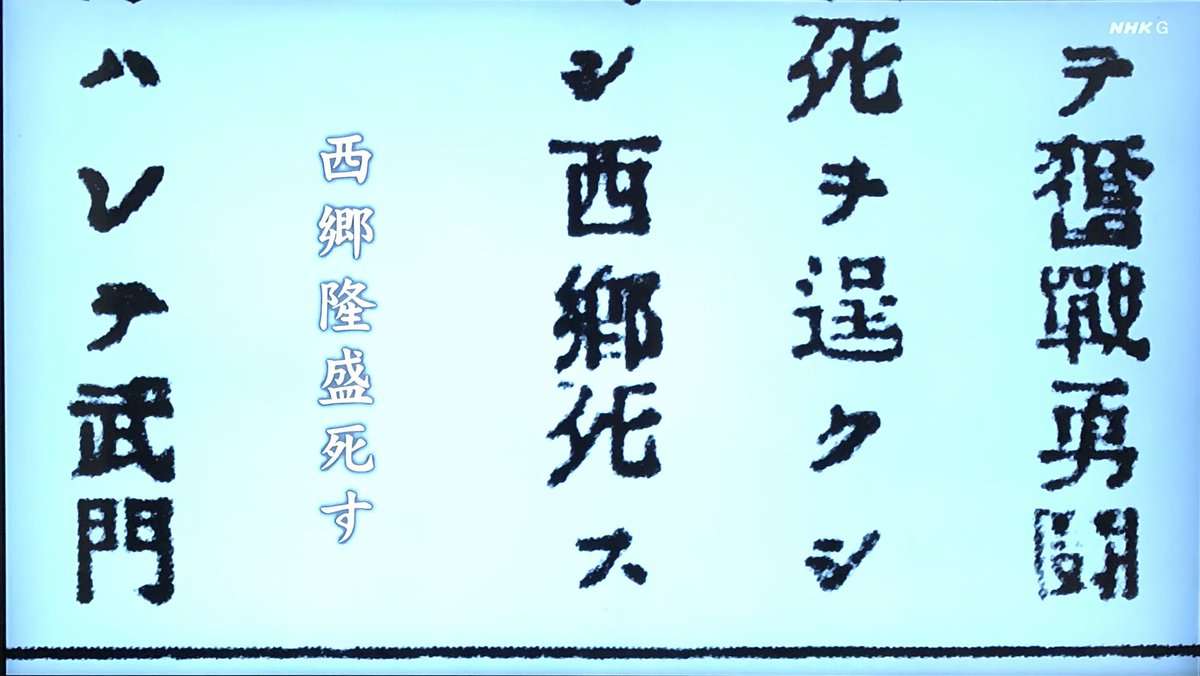 NHK G
テ奮戰勇鬪
死ヲ逞クシ
シ西郷死ス
西郷隆盛死す
ハレテ武門